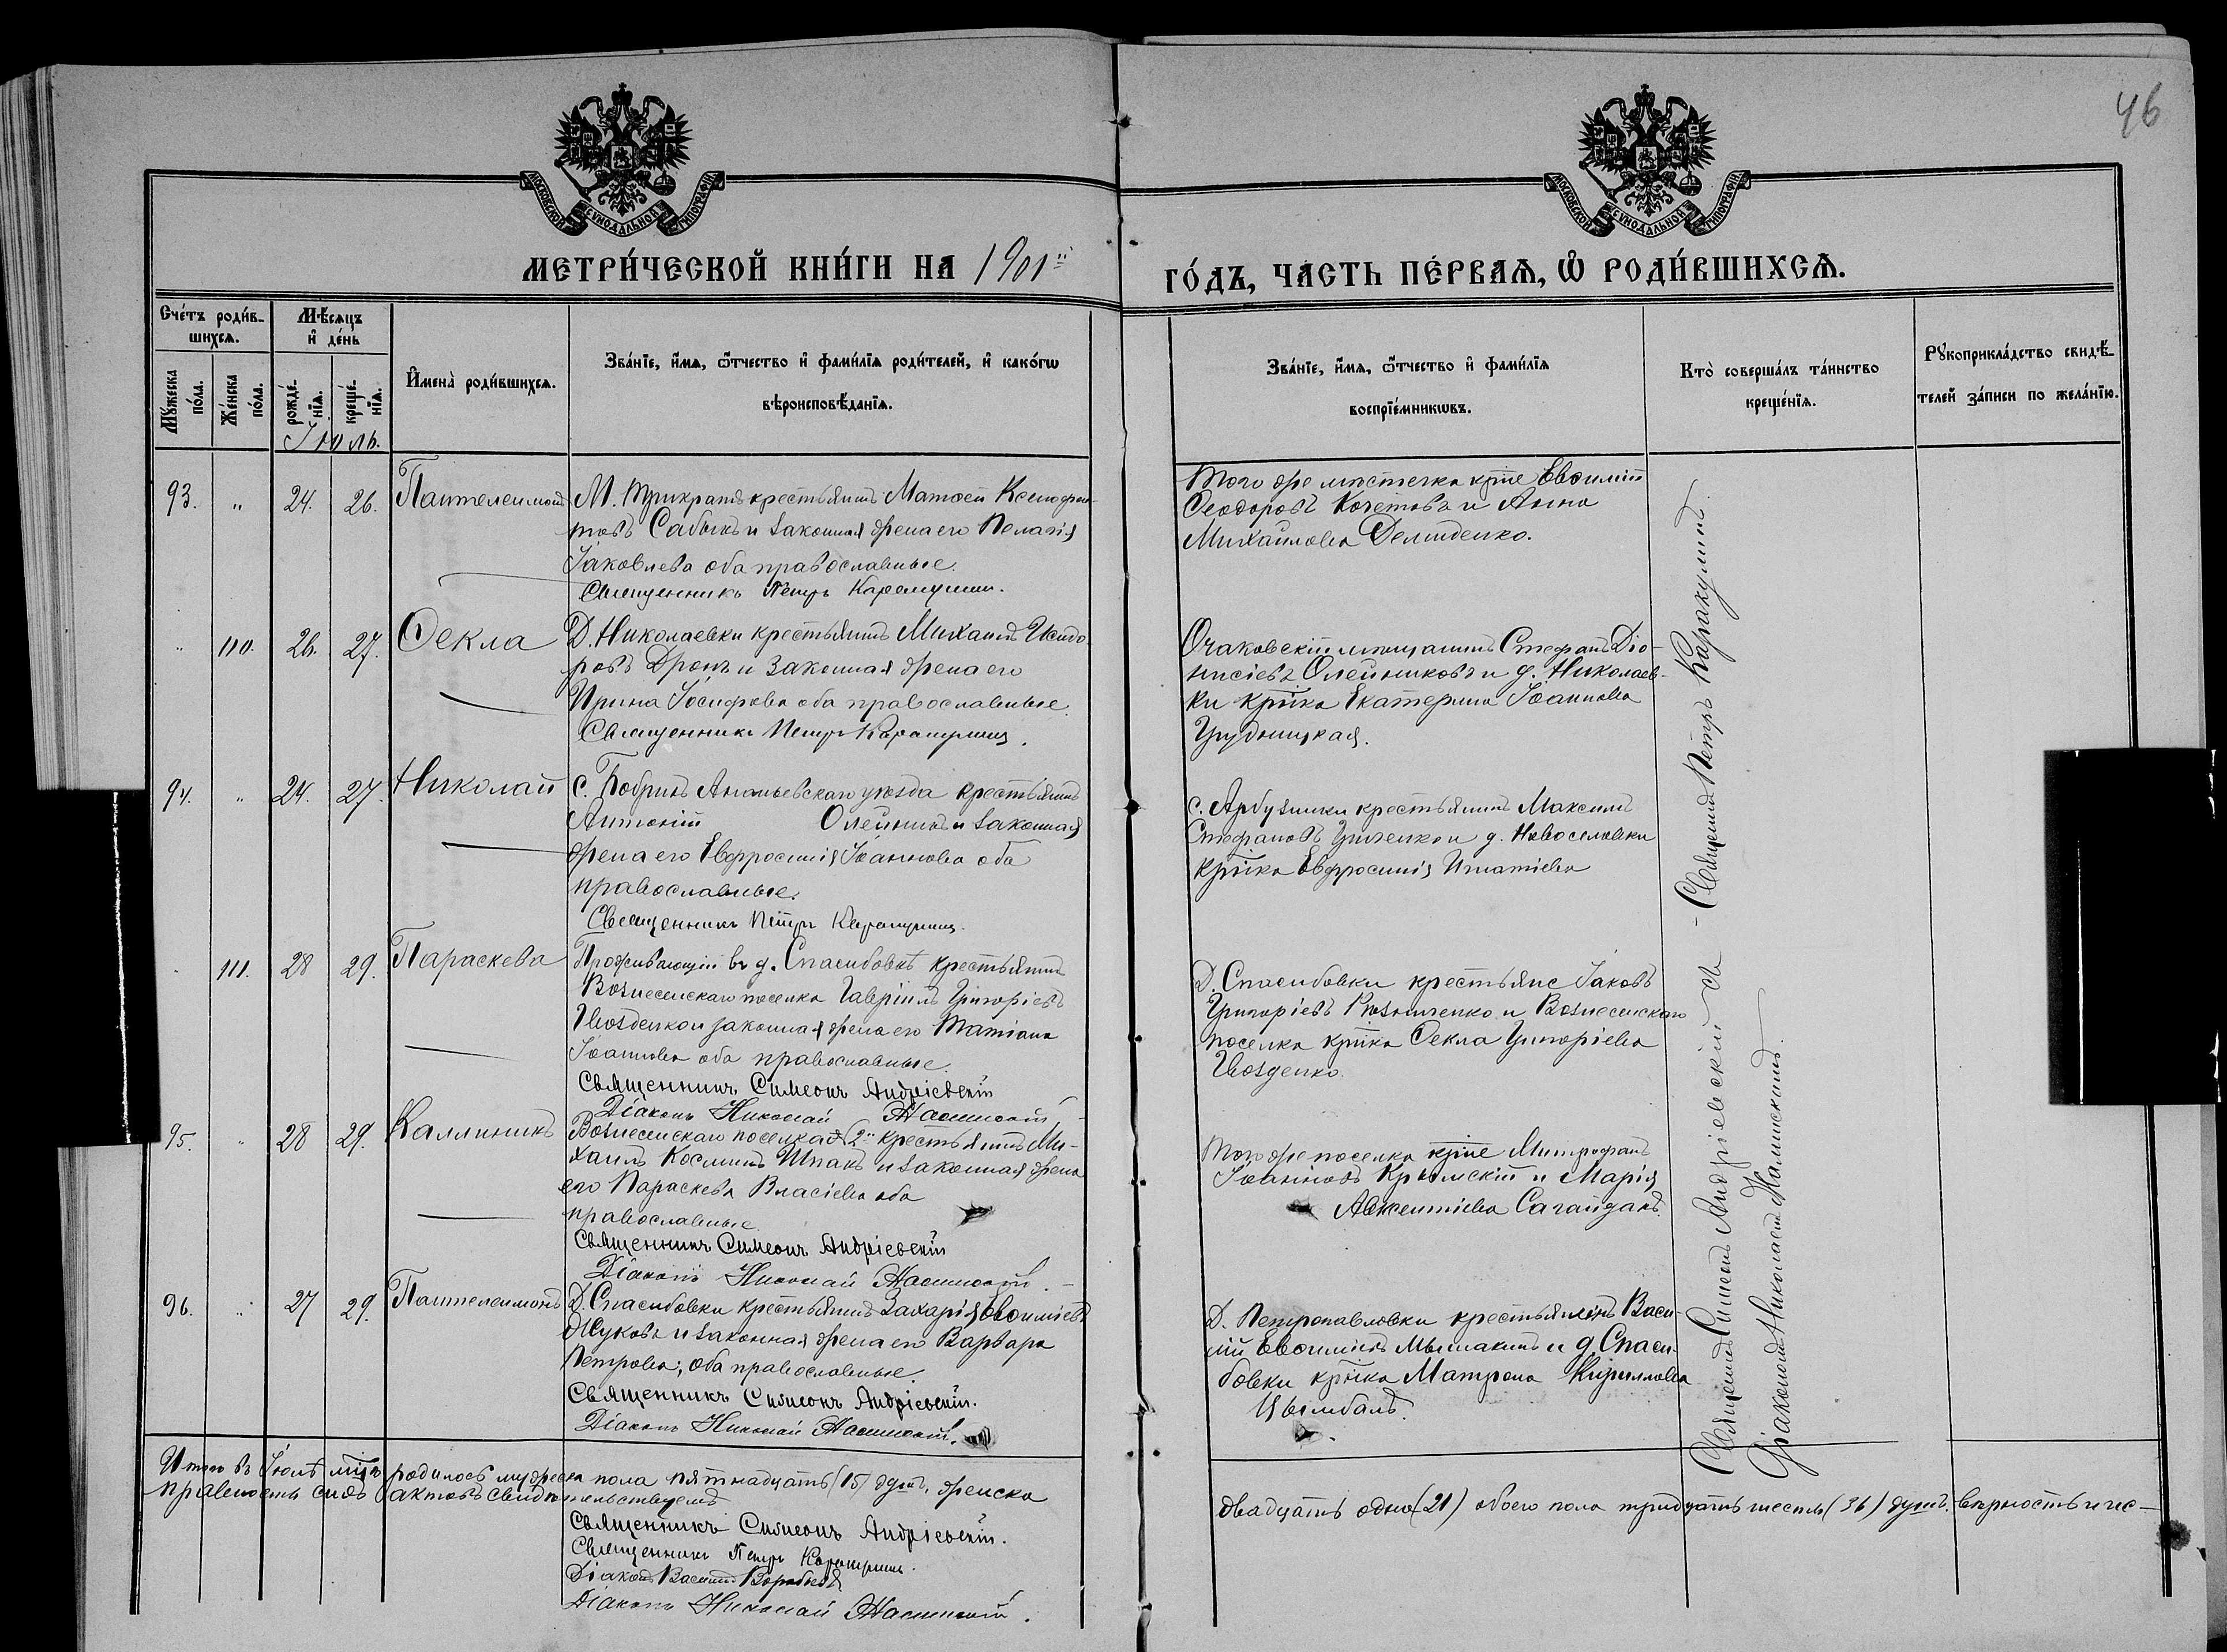 46
МОСКОВСКОЙ СѴНОДАЛЬНОЙ ТИПОГРАФІИ
МОСКОВСКОЙ СѴНОДАЛЬНОЙ ТИПОГРАФІИ
МЕТРИ́ЧЕСКОЙ КНИ́ГИ НА 1901й
ГО́ДЪ, ЧА́СТЬ ПЕ́РВАѦ, Ѽ РОДИ́ВШИХСѦ.
Сче́тъ роди́в-
шихсѧ.
Мѣ́сѧцъ
и҆ де́нь
Мꙋ́жеска
по́ла.
Же́нска
по́ла.
рожде́-
нїѧ.
креще́-
нїѧ.
И҆мена̀ роди́вшихсѧ.
Зва́нїе, и҆́мѧ, ѻ҆́тчество и҆ фами́лїѧ роди́телей, и҆ како́гѡ
вѣроисповѣ́данїѧ.
Зва́нїе, и҆́мѧ, ѻ҆́тчество и҆ фами́лїѧ
воспрїе́мникѡвъ.
Кто̀ соверша́лъ та́инство
креще́нїѧ.
Рꙋкоприкла́дство свидѣ́-
телей за́писи по жела́нїю.
Іюль.
93. " 24. 26. Пантелеимонъ
М. Трикратъ крестьянинъ Матѳей Ксенофон-
товъ Сабыкъ и законная жена его Пелагія
Іаковлева оба православные.
Священникъ Петръ Каракулинъ.
Того же мѣстечка крт͞не Евѳимій
Ѳеодоровъ Кочетовъ и Анна
Михайлова Демиденко.
" 110. 26. 27. Ѳекла
Д. Николаевки крестьянинъ Михаилъ Исидо-
ровъ Дронъ и законная жена его
Ирина Іосифова оба православные.
Священникъ Петръ Каракулинъ.
Очаковскій мѣщанинъ Стефанъ Діо-
нисіевъ Олейниковъ и д. Николаев-
ки крт͞нка Екатерина Іоаннова
Грудницкая.
94. " 24. 27. Николай
С. Бобрикъ Ананьевскаго уѣзда крестьянинъ
Антоній Олейникъ и законная
жена его Евфросинія Іоаннова оба
православные.
Священникъ Петръ Каракулинъ.
С. Арбузинки крестьянинъ Максимъ
Стефановъ Гриченко и д. Новоселовки
крт͞нка Евфросинія Игнатіева
" 111. 28 29. Параскева
Проживающій въ д. Спасибовкѣ крестьянинъ
Вознесенскаго поселка Гавріилъ Григоріевъ
Гвозденко и законная жена его Татіана
Іоаннова оба православные.
Священникъ Симеонъ Андріевскій
Діаконъ Николай
Д. Спасибовки крестьяне Іаковъ
Григоріевъ Рѣзниченко и Вознесенскаго
поселка крт͞нка Ѳекла Григоріева
Гвозденко.
95. " 28 29. Каллиникъ
Вознесенскаго поселка крестьянинъ Ми-
хаилъ Косминъ Шпакъ и законная жена
его Параскева Власіева оба
православные.
Священникъ Симеонъ Андріевскій
Діаконъ Николай
Того же поселка крт͞не Митрофанъ
Іоанновъ Крымскій и Марія
Авксентіева Сагайдакъ.
96. " 27 29. Пантелеимонъ
Д. Спасибовки крестьянинъ Захарія Евѳиміевъ
Жуковъ и законная жена его Варвара
Петрова; оба православные.
Священникъ Симеонъ Андріевскій.
Діаконъ Николай
Д. Петропавловки крестьянинъ Васи-
лій Евѳиміевъ и д. Спаси-
бовки крт͞нка Матрона Кириллова
Цымбалъ.
Священникъ Петръ Каракулинъ.
Священникъ Симеонъ Андріевскій съ
Діакономъ Николаемъ
Итого въ Іюлѣ мц͞ѣ родилось мужеска пола пятнадцать (15) душъ, женска
двадцать одна (21) обоего пола тридцать шесть (36) душъ. вѣрность и пра-
вильность сихъ актовъ свидѣтельствуемъ
Священникъ Симеонъ Андріевскій.
Священникъ Петръ Каракулинъ.
Діаконъ Василій Воробьевъ
Діаконъ Николай